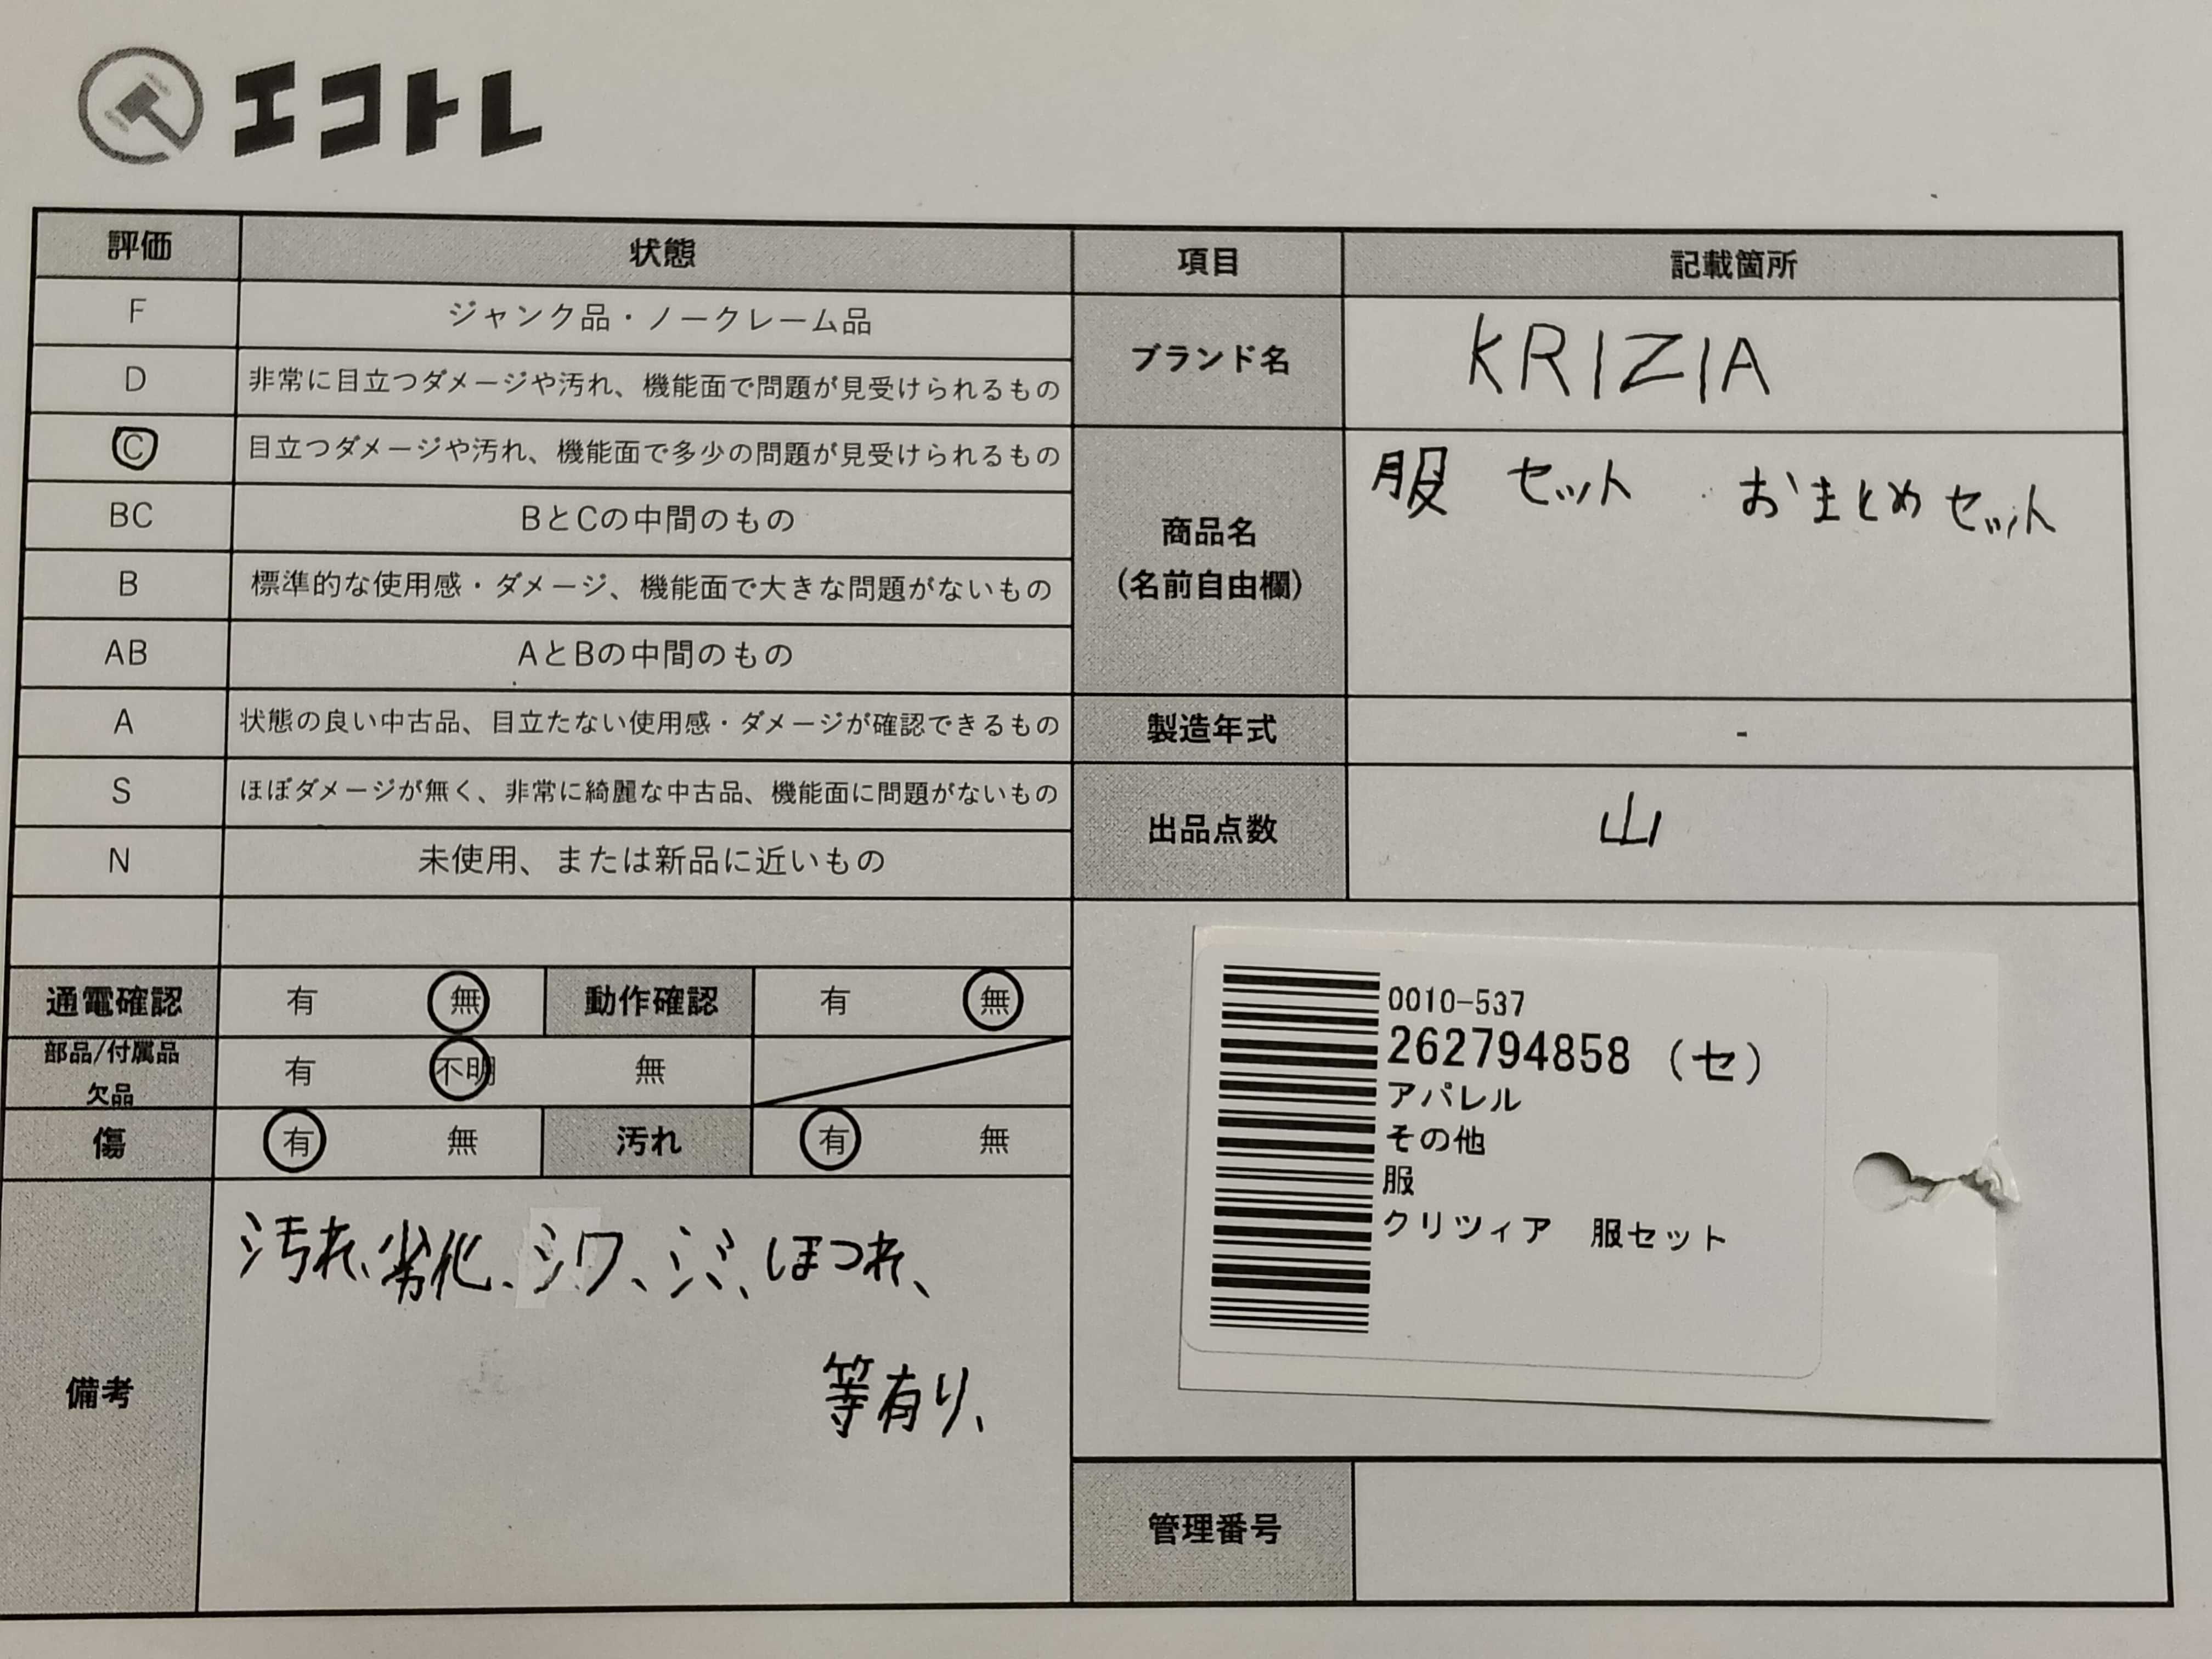 エコトレ
評価 状態 項目 記載箇所
F ジャンク品・ノークレーム品
D 非常に目立つダメージや汚れ、機能面で問題が見受けられるもの
C 目立つダメージや汚れ、機能面で多少の問題が見受けられるもの
BC BとCの中間のもの
B 標準的な使用感・ダメージ、機能面で大きな問題がないもの
AB AとBの中間のもの
A 状態の良い中古品、目立たない使用感・ダメージが確認できるもの
S ほぼダメージが無く、非常に綺麗な中古品、機能面に問題がないもの
N 未使用、または新品に近いもの
通電確認 有 無 動作確認 有 無
部品/付属品
欠品 有 不明 無
傷 有 無 汚れ 有 無
備考
汚れ、劣化、シワ、シミ、ほつれ、
等有り、
ブランド名 KRIZIA
商品名
(名前自由欄)
服 セット おまとめセット
製造年式 -
出品点数 山
0010-537
262794858 (セ)
アパレル
その他
服
クリツィア 服セット
管理番号